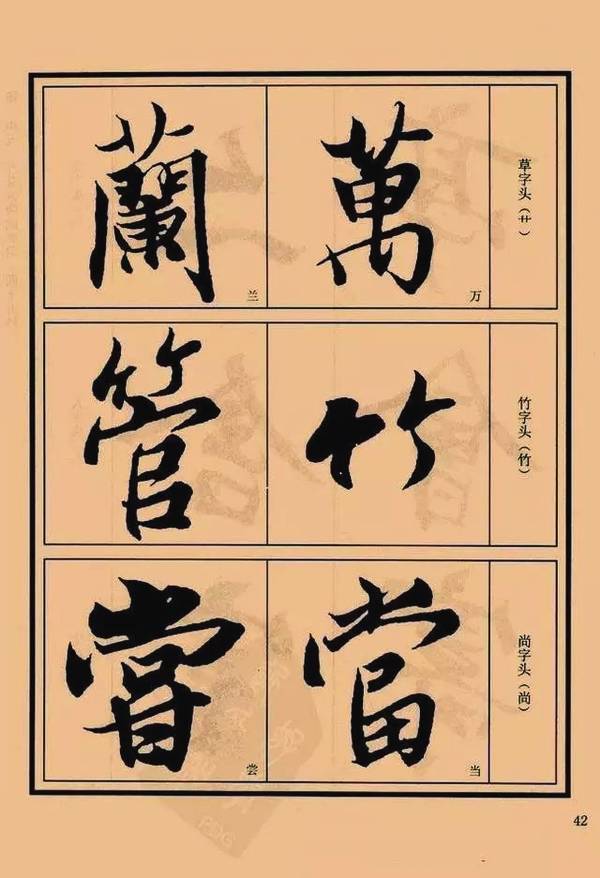 草字头（艹）
萬
万
蘭
兰
竹字头（竹）
竹
管
尚字头（尚）
當
当
嘗
尝
42